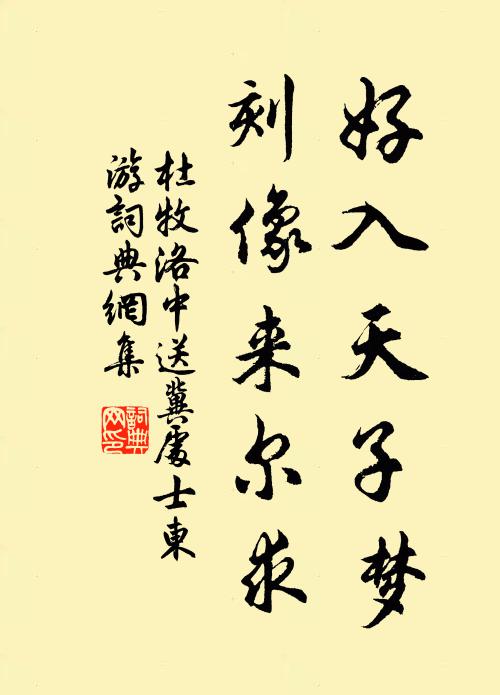 好入天子梦
刻像来尔求
杜牧洛中送冀處士東
游詞典網集
詞典
网印